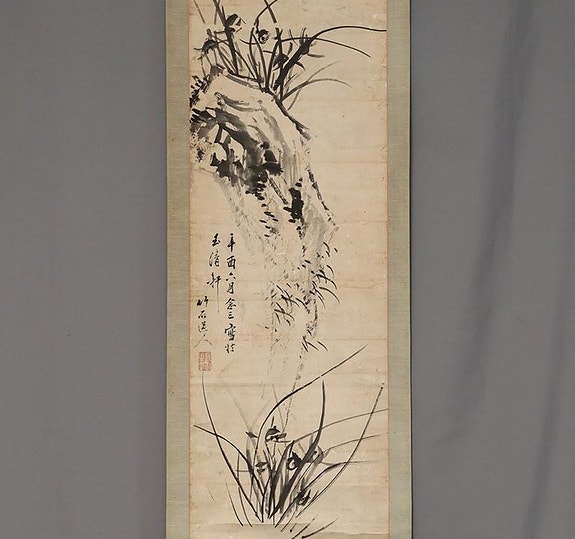 辛酉六月念三寫於
玉清軒
竹石人